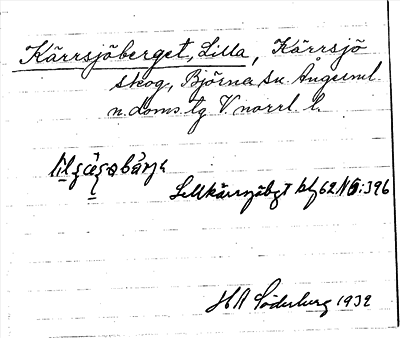 Kärrsjöberget, Lilla, Kärrsjö
skog, Björna sn. Ångerml.
n. doms tg V. norrl l.
Lillkärrsjöbgt bl 62 NO: 396
HA Söderberg 1932